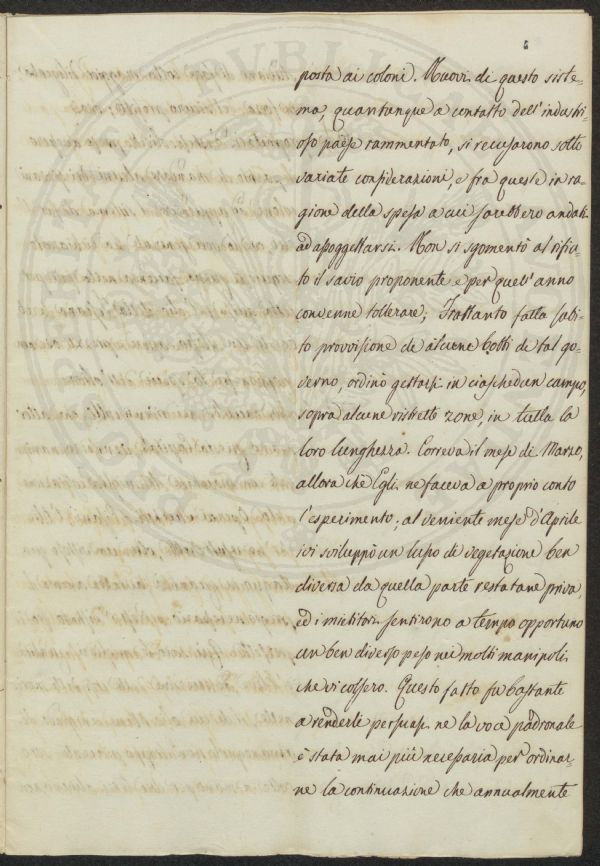 posta ai coloni. Nuovi di questo siste=
ma, quantunque a contatto dell'industri=
oso paese rammentato, si recusarono sotto
variate considerazioni, e fra queste in ra=
gione della spesa a cui sarebbero andati
ad apoggettarsi. Non si sgomentò al rifiu=
to il savio proponente e per quell'anno
convenne tollerare; Frattanto fatta subi=
to provvisione de alcune botti di tal go=
verno, ordinò gettarsi in ciaschedun campo,
sopra alcune ristrette zone, in tutta la
loro lunghezza. Correva il mese di Marzo,
allora che Egli ne faceva a proprio conto
l'esperimento; al veniente mese d'Aprile
ivi sviluppò un lusso di vegetazione ben
diversa da quella parte restatane priva,
ed i mietitori sentirono a tempo opportuno
un ben diverso peso nei molti manipoli
che vi colsero. Questo fatto fu bastante
a renderli persuasi ne la voce padronale
è stata mai più necessaria per ordinar=
ne la continuazione che annualmente